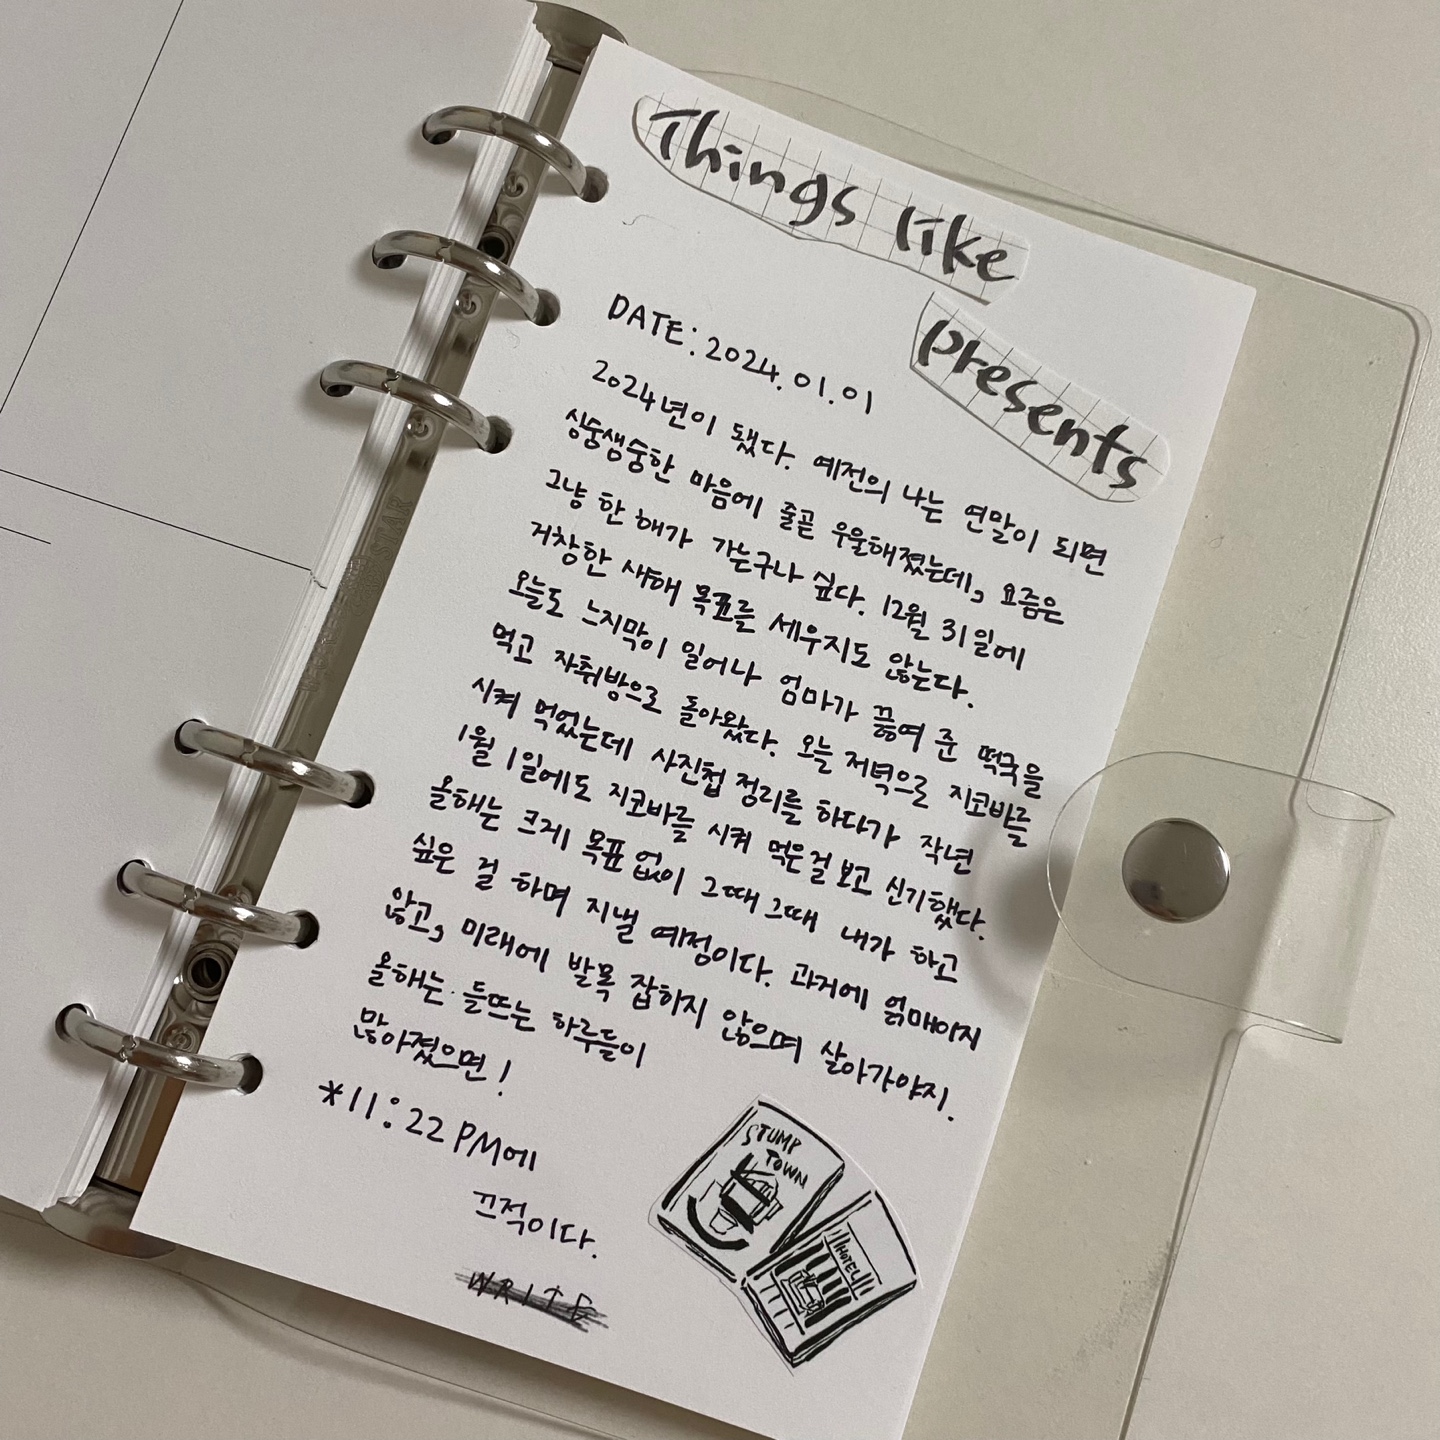 Things like
presents
DATE: 2024.01.01
2024년이 됐다. 예전의 나는 연말이 되면
싱숭생숭한 마음에 줄곧 우울해졌는데, 요즘은
그냥 한 해가 가는구나 싶다. 12월 31일에
거창한 새해 목표를 세우지도 않는다.
오늘도 느지막이 일어나 엄마가 끓여 준 떡국을
먹고 자취방으로 돌아왔다. 오늘 저녁으로 지코바를
시켜 먹었는데 사진첩 정리를 하다가 작년
1월 1일에도 지코바를 시켜 먹은 걸 보고 신기했다.
올해는 크게 목표 없이 그때 그때 내가 하고
싶은 걸 하며 지낼 예정이다. 과거에 얽매이지
않고, 미래에 발목 잡하지 않으며 살아가야지.
올해는 들뜨는 하루들이
많아졌으면!
*11:22 PM에
끄적이다.
WRITE
STUMP
TOWN
HOTEL